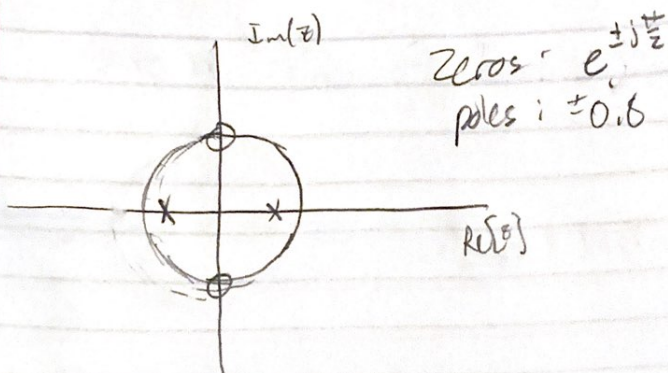 Im(z)
zeros: e^{±jπ/2}
poles: ±0.8
Re[z]